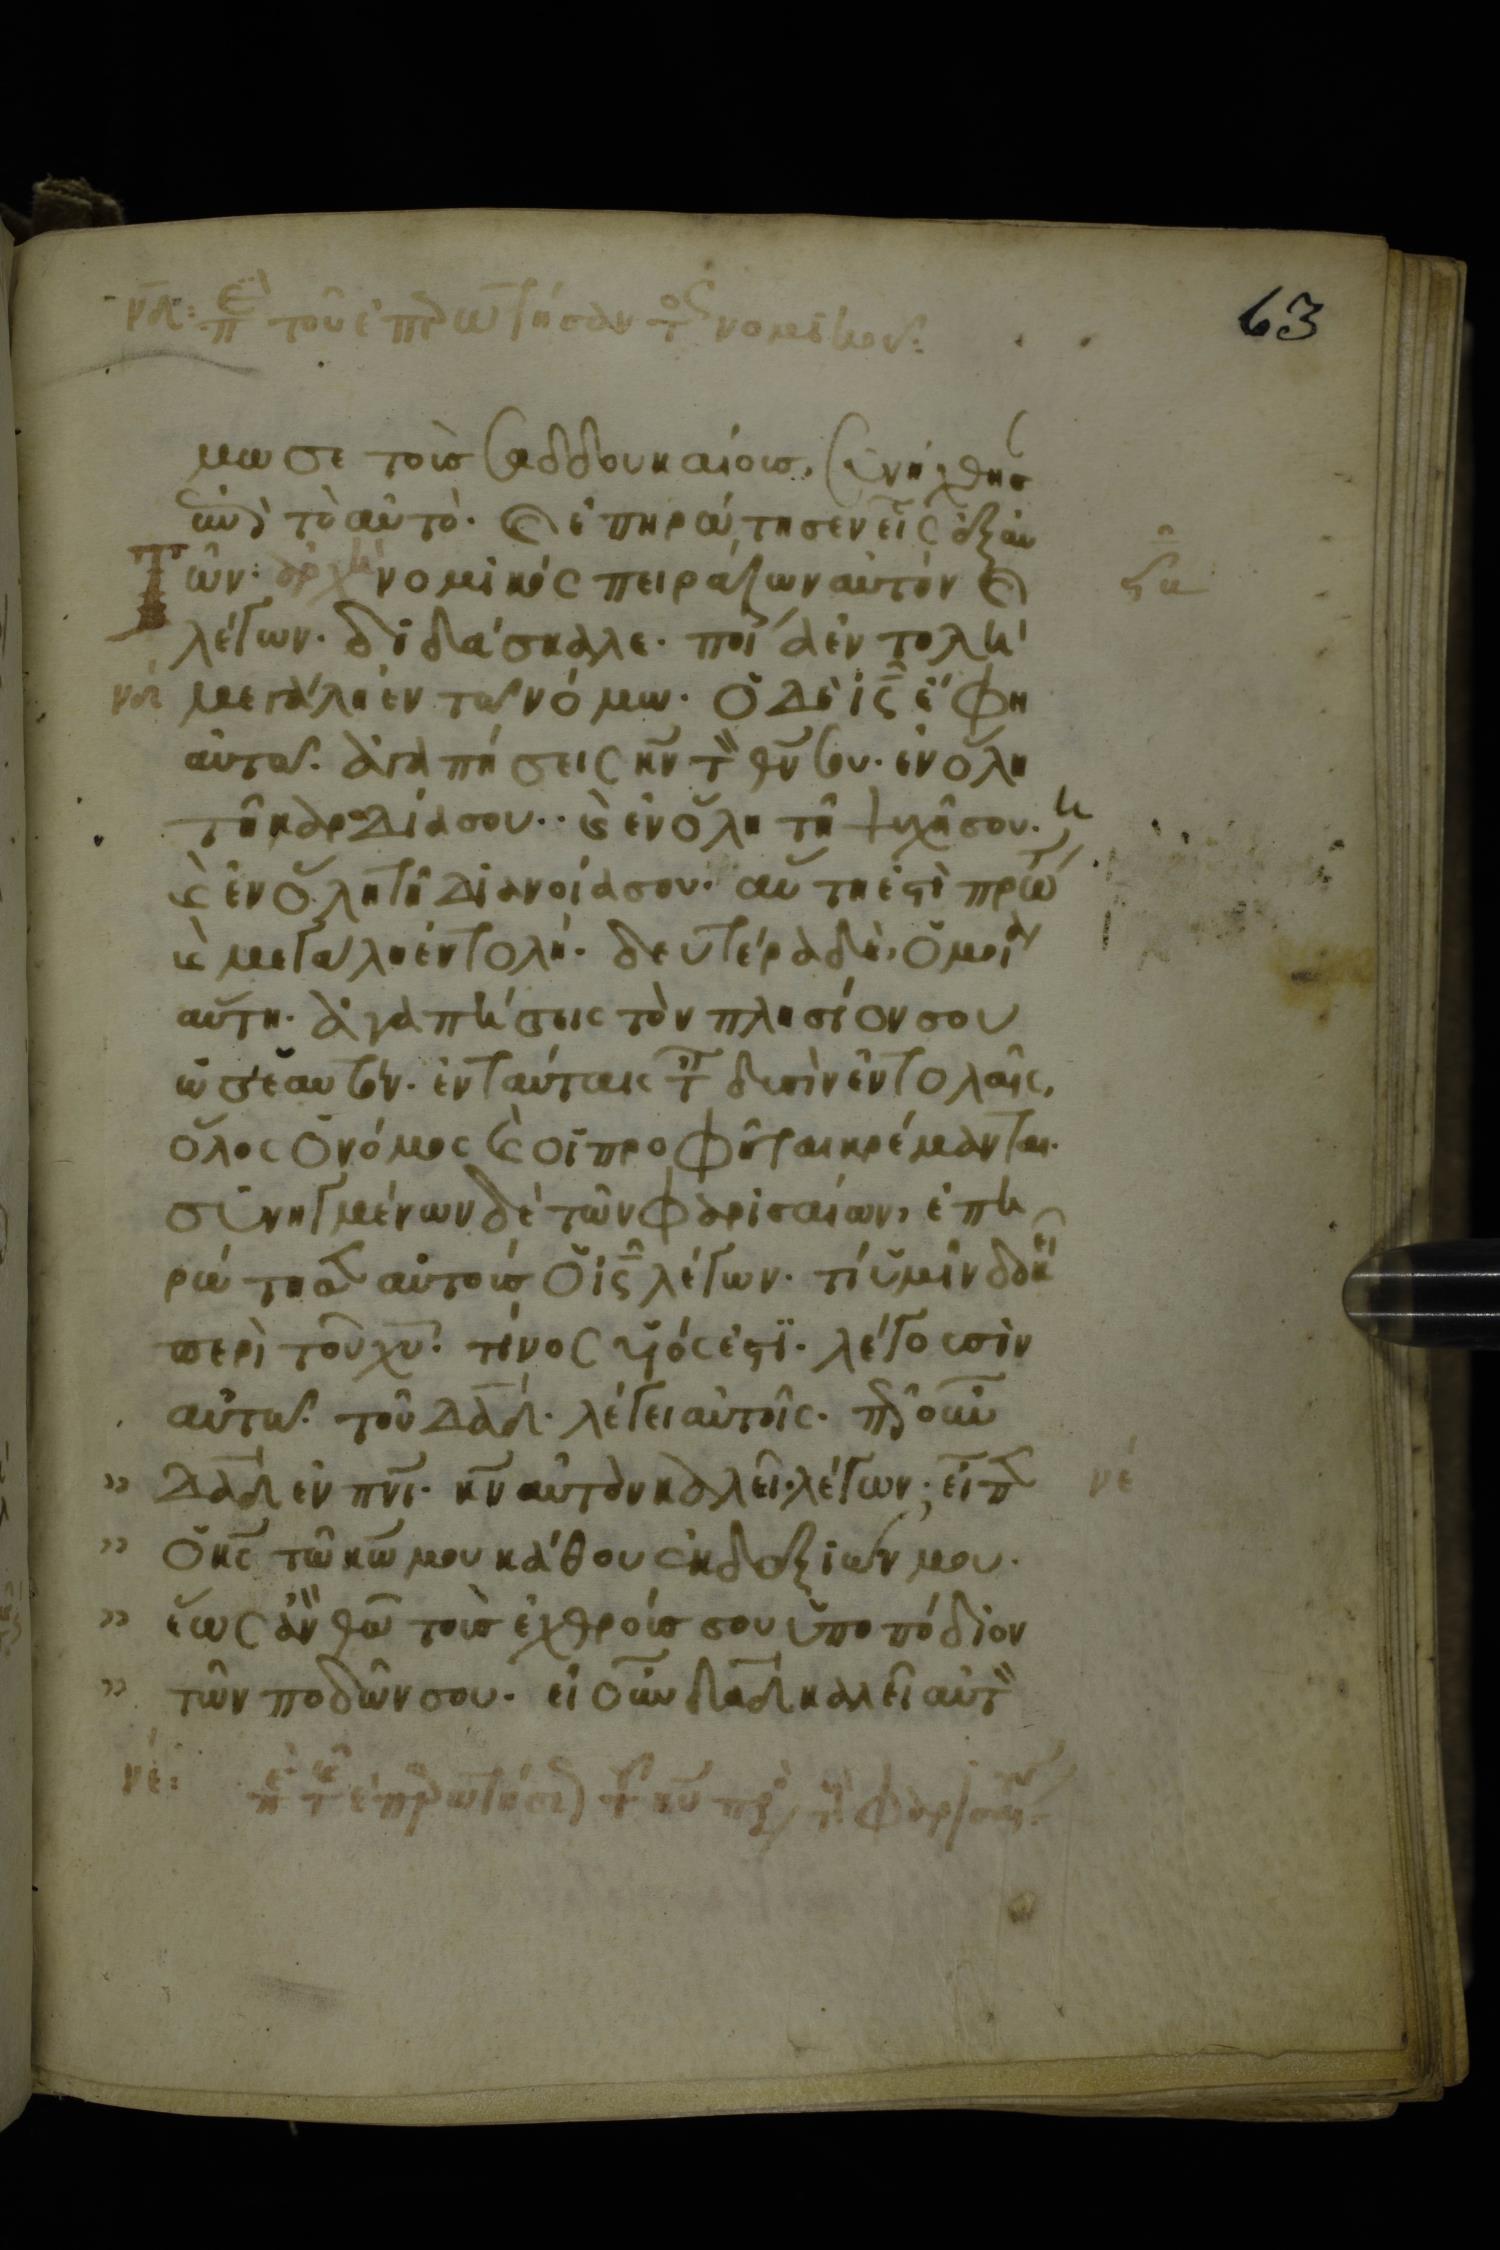 νδ: περὶ τοῦ ἐπερωτήσαντος νομικοῦ:
63
μωσε τοὺς σαδδουκαίους, συνήχθησ
ἐπὶ τὸ αὐτὸ. καὶ ἐπηρώτησεν εἷς ἐξ αὐ
τῶν· ἀρχ νομικὸς πειράζων αὐτόν καὶ
λέγων· διδάσκαλε· ποία ἐντολὴ
νδ μεγάλη ἐν τῶ νόμω. ὁ δὲ ἰς ἔφη
αὐτῶ. ἀγαπήσεις κν τὸν θν σου. ἐν ὅλη
τῆ καρδία σου. καὶ ἐν ὅλη τῆ ψυχῆ σου.
καὶ ἐν ὅλη τῆ διανοία σου. αὕτη ἐστὶ πρώτη
καὶ μεγάλη ἐντολή. δευτέρα δὲ, ὁμοία
αὕτη. ἀγαπήσεις τὸν πλησίον σου
ὡς ἑαυτόν. ἐν ταύταις ταῖς δυσὶν ἐντολαῖς,
ὅλος ὁ νόμος καὶ οἱ προφῆται κρέμανται.
συνηγμένων δὲ τῶν φαρισαίων, ἐπη
ρώτησεν αὐτοὺς ὁ ἰς λέγων. τί ὑμῖν δοκεῖ
περὶ τοῦ χυ. τίνος υἱός ἐστι. λέγουσιν
αὐτῶ. τοῦ δαδ. λέγει αὐτοῖς. πῶς οὖν
δαδ ἐν πνι. κν αὐτὸν καλεῖ. λέγων· εἶπεν
νε
ὁ κς τῶ κω μου κάθου ἐκ δεξιῶν μου.
ἕως ἂν θῶ τοὺς ἐχθρούς σου ὑποπόδιον
τῶν ποδῶν σου. εἰ οὖν δαδ καλεῖ αὐτὸν
νε: περὶ τῆς ἐπερωτήσεως τοῦ κυ πρὸς τοὺς φαρισαίους